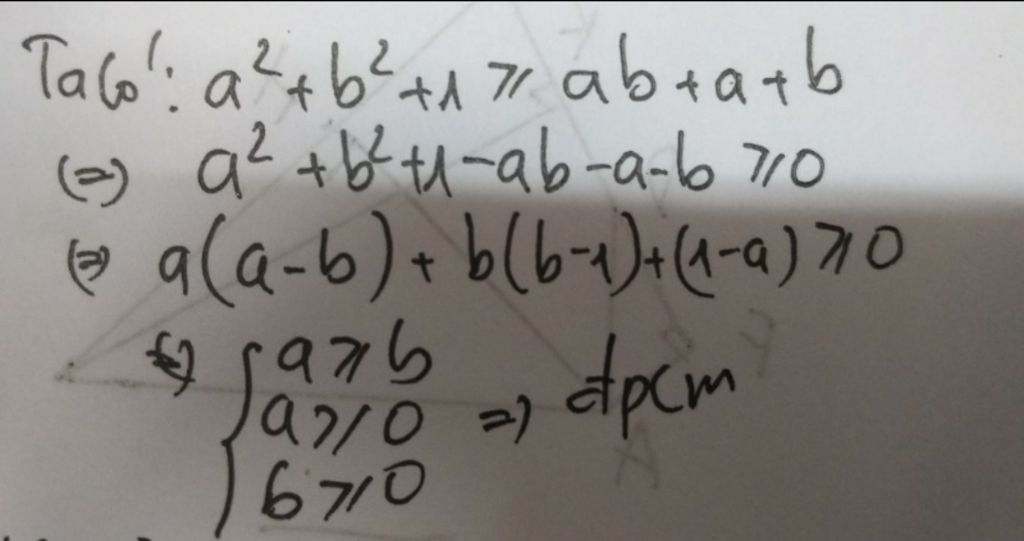 Ta có: a² + b² + 1 ≥ ab + a + b
(=) a² + b² + 1 - ab - a - b ≥ 0
(=) a(a - b) + b(b - 1) + (1 - a) ≥ 0
{ a ≥ b
a ≥ 0 => đpcm
b ≥ 0